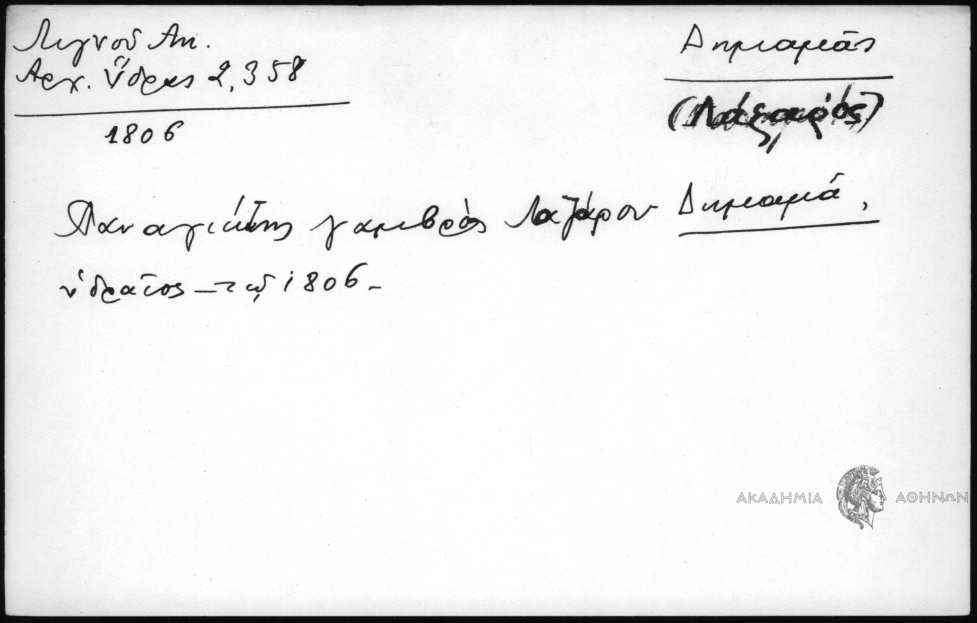 Λιγνού Αν.
Αρχ. Ὕδρας 2, 358
1806
Δημαμάς
(Λάζαρος)
Παναγιώτης γαμβρός Λαζάρου Δημαμά,
ὑδραῖος – τῷ 1806 –
ΑΚΑΔΗΜΙΑ ΑΘΗΝΩΝ